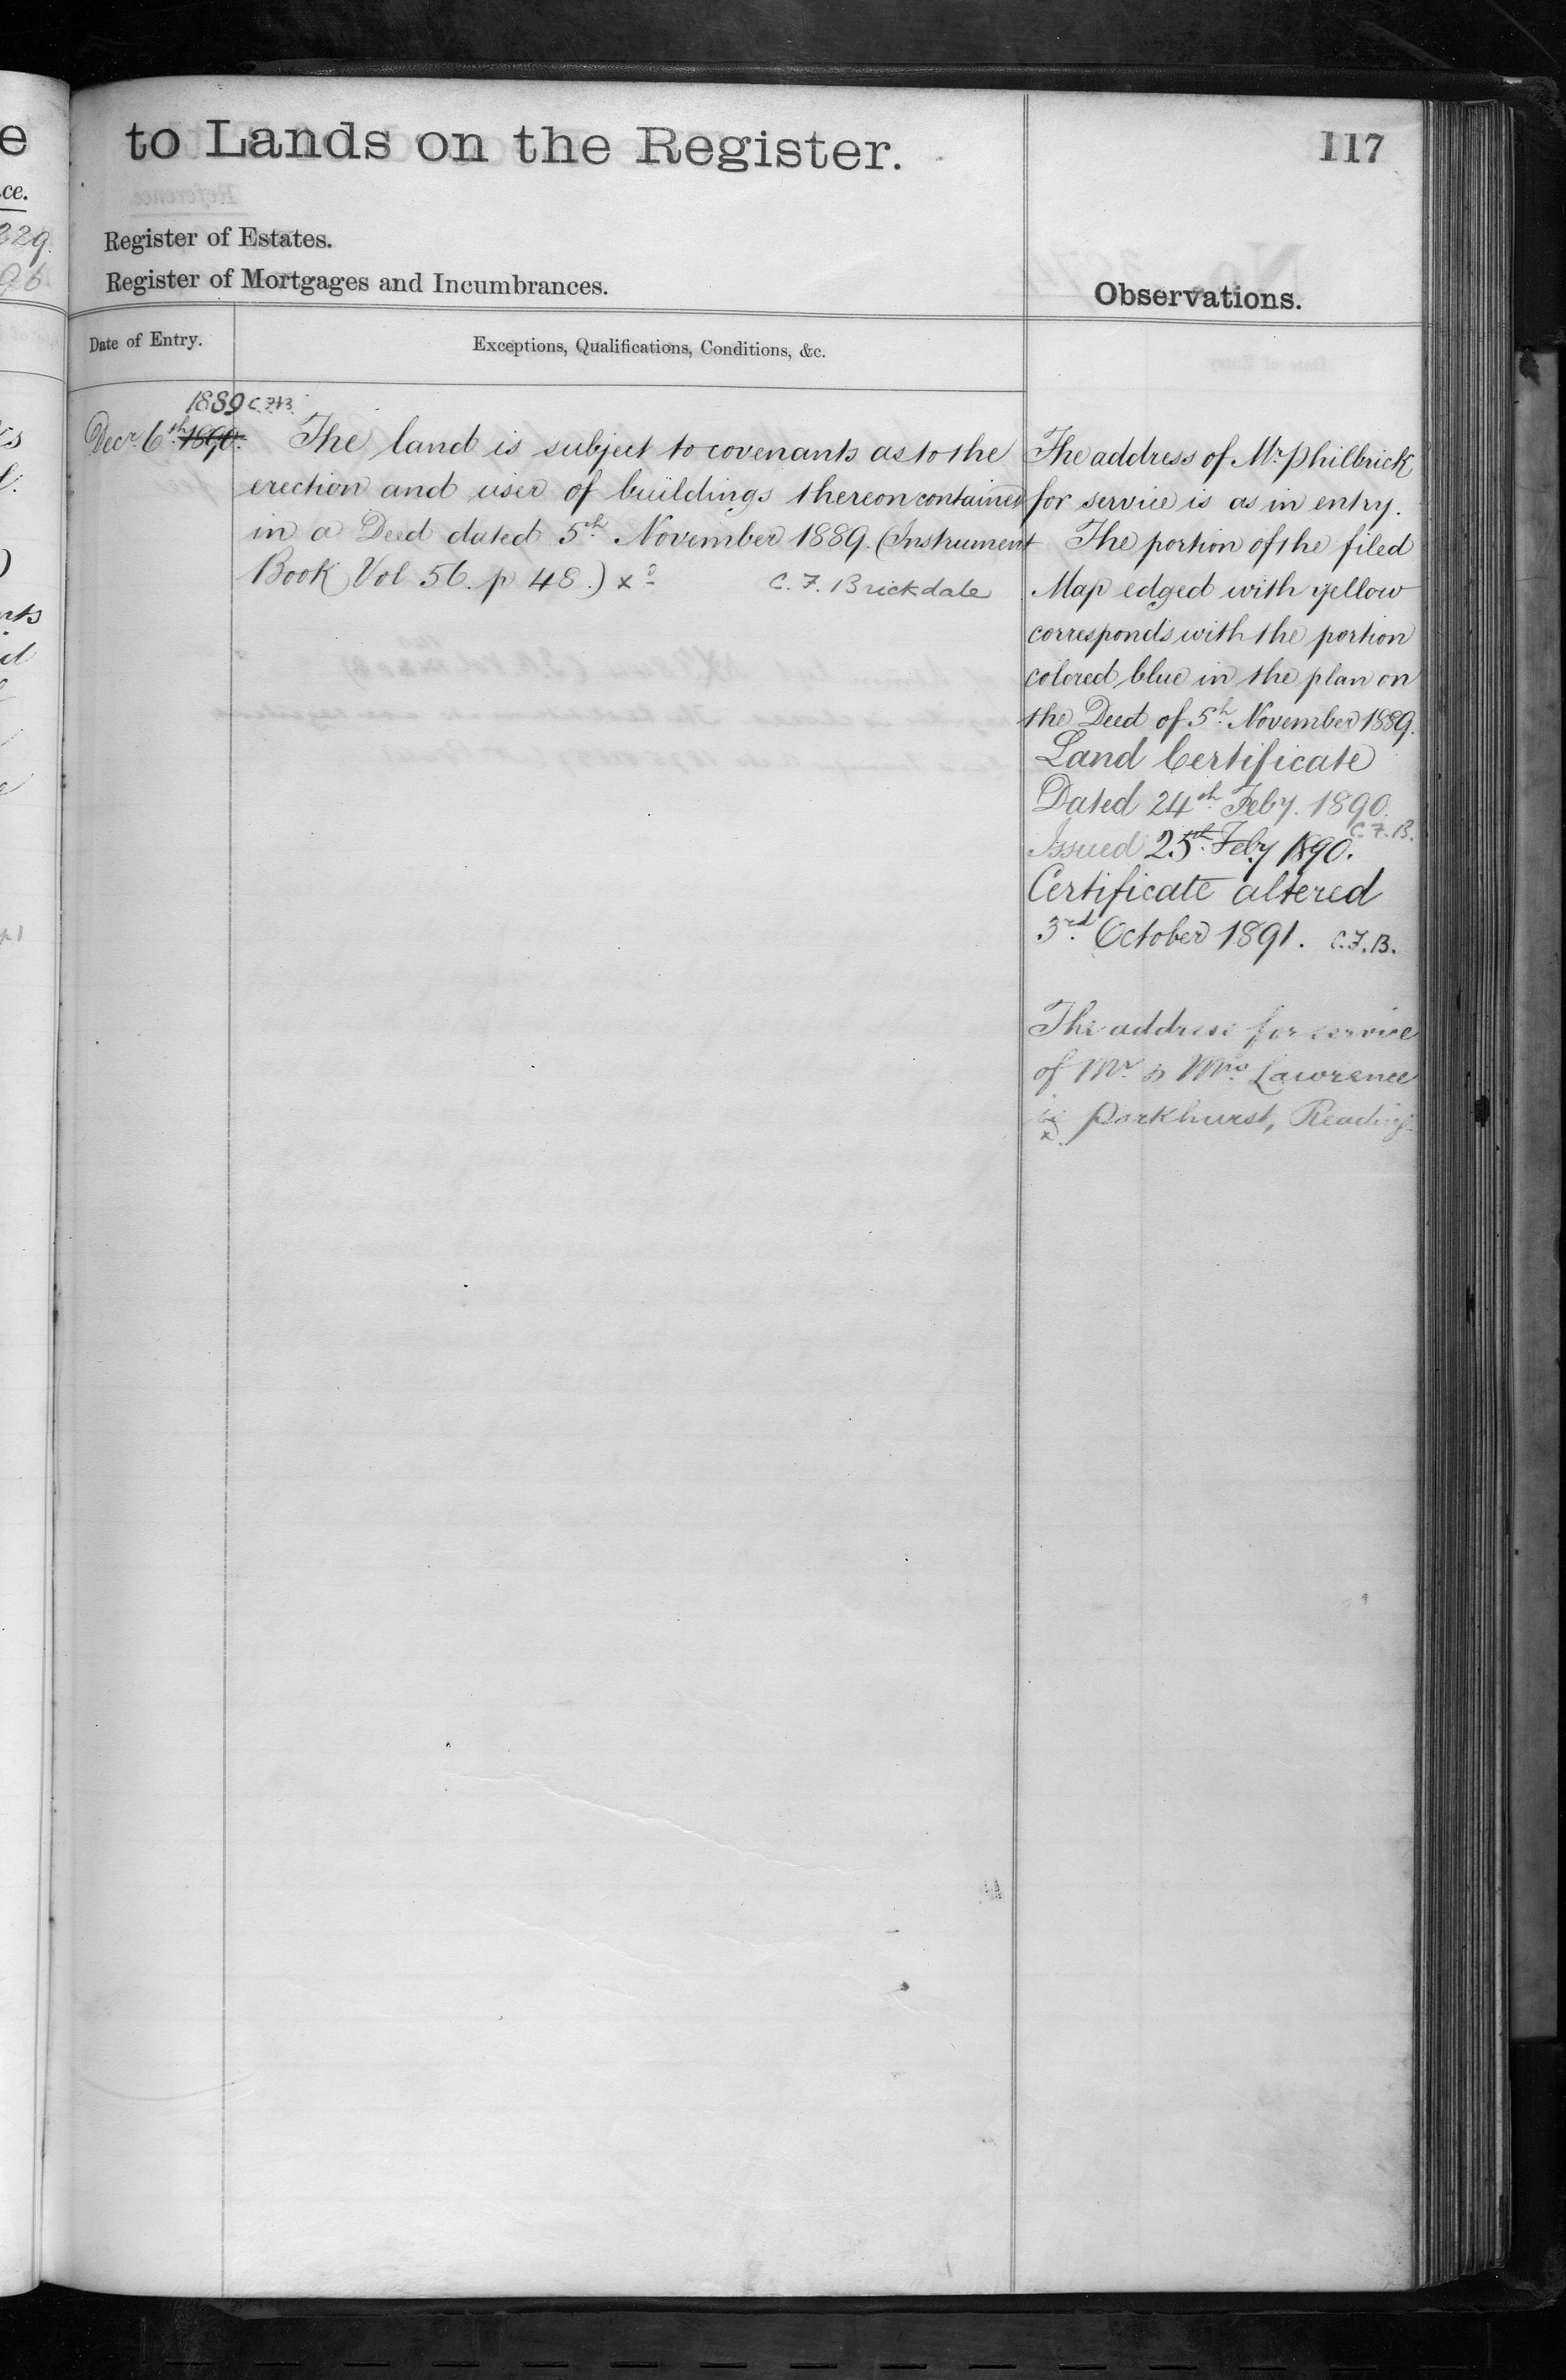 to Lands on the Register.
117
Register of Estates.
Register of Mortgages and Incumbrances.
Observations.
Date of Entry.
Exceptions, Qualifications, Conditions, &c.
1889 C.F.B.
Decr. 6th 1890.
The land is subject to covenants as to the
erection and user of buildings thereon contained
in a Deed dated 5th November 1889. (Instrument
Book Vol 56. p 48.)
C. F. Brickdale
The address of Mr. Philbrick
for service is as in entry.
The portion of the filed
Map edged with yellow
corresponds with the portion
colored blue in the plan on
the Deed of 5th November 1889.
Land Certificate
Dated 24th Feby. 1890.
C.F.B.
Issued 25th Feby 1890.
Certificate altered
3rd October 1891. C.F.B.
The address for service
of Mr. & Mrs. Lawrence
is Parkhurst, Reading
e
ce.